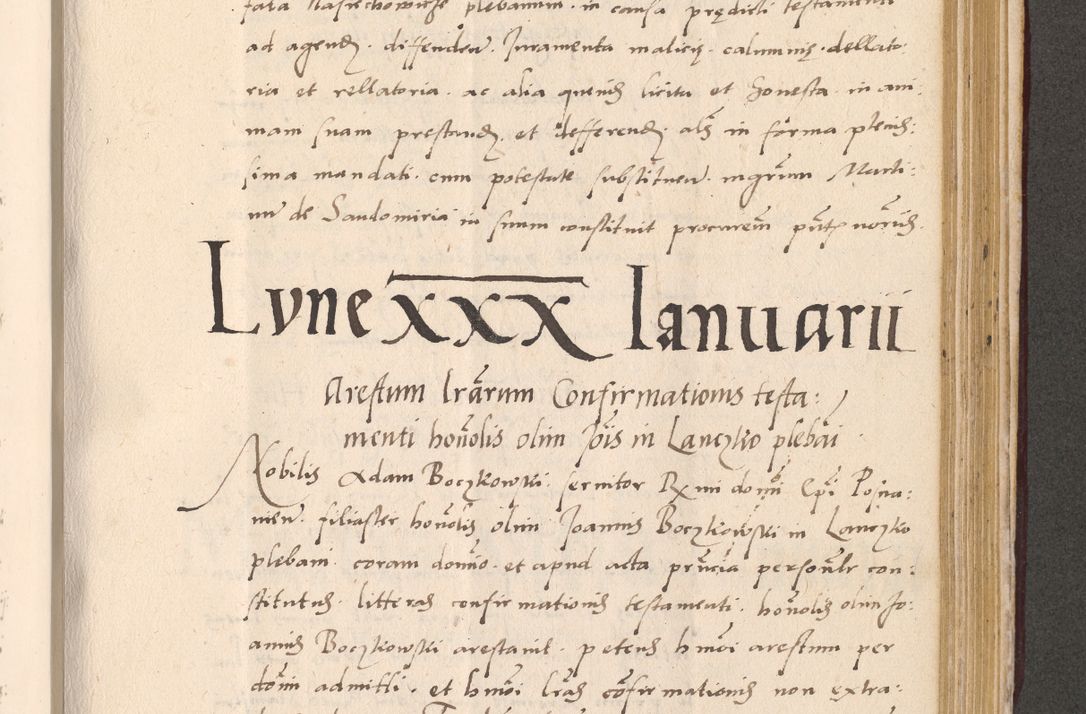 fata Nasiechowicze plebanum · in causa prędicti testamenti
ad agendȝ · diffenden̄ · Iuramenta malicię · calumnię · dellato:
ria et rellatoria · ac alia quenis licita et honesta · in ani:
mam suam prestandȝ · et defferendȝ · als in forma plenis:
sima mandati · cum potestate substituen̄ · mgr̄um Marti:
nū de Sandomiria in suum constituit procurem̄
Lvne xxx Ianuarii
Arestum lrārum Confirmationis testa:
menti hono̅lis olim Jo̅is in Lanczko plebāi
Nobilis Adam Boczkowski · seruitor Rx̄mi dom̄i Ep̄i Posna:
nien̄ · filiaster hono̅lis olim Joannis Boczkowski in Lanczko
plebani · coram domi̅no · et apud acta prn̄cia personl̄r con:
stitutus · litteras confirmationis testamenti · hono̅lis olim Jo:
annis Boczkowski arestauit · petens hm̄oi arestum per
dom̄i admitti · et hm̄oi lrās co̅firmationis non extra: